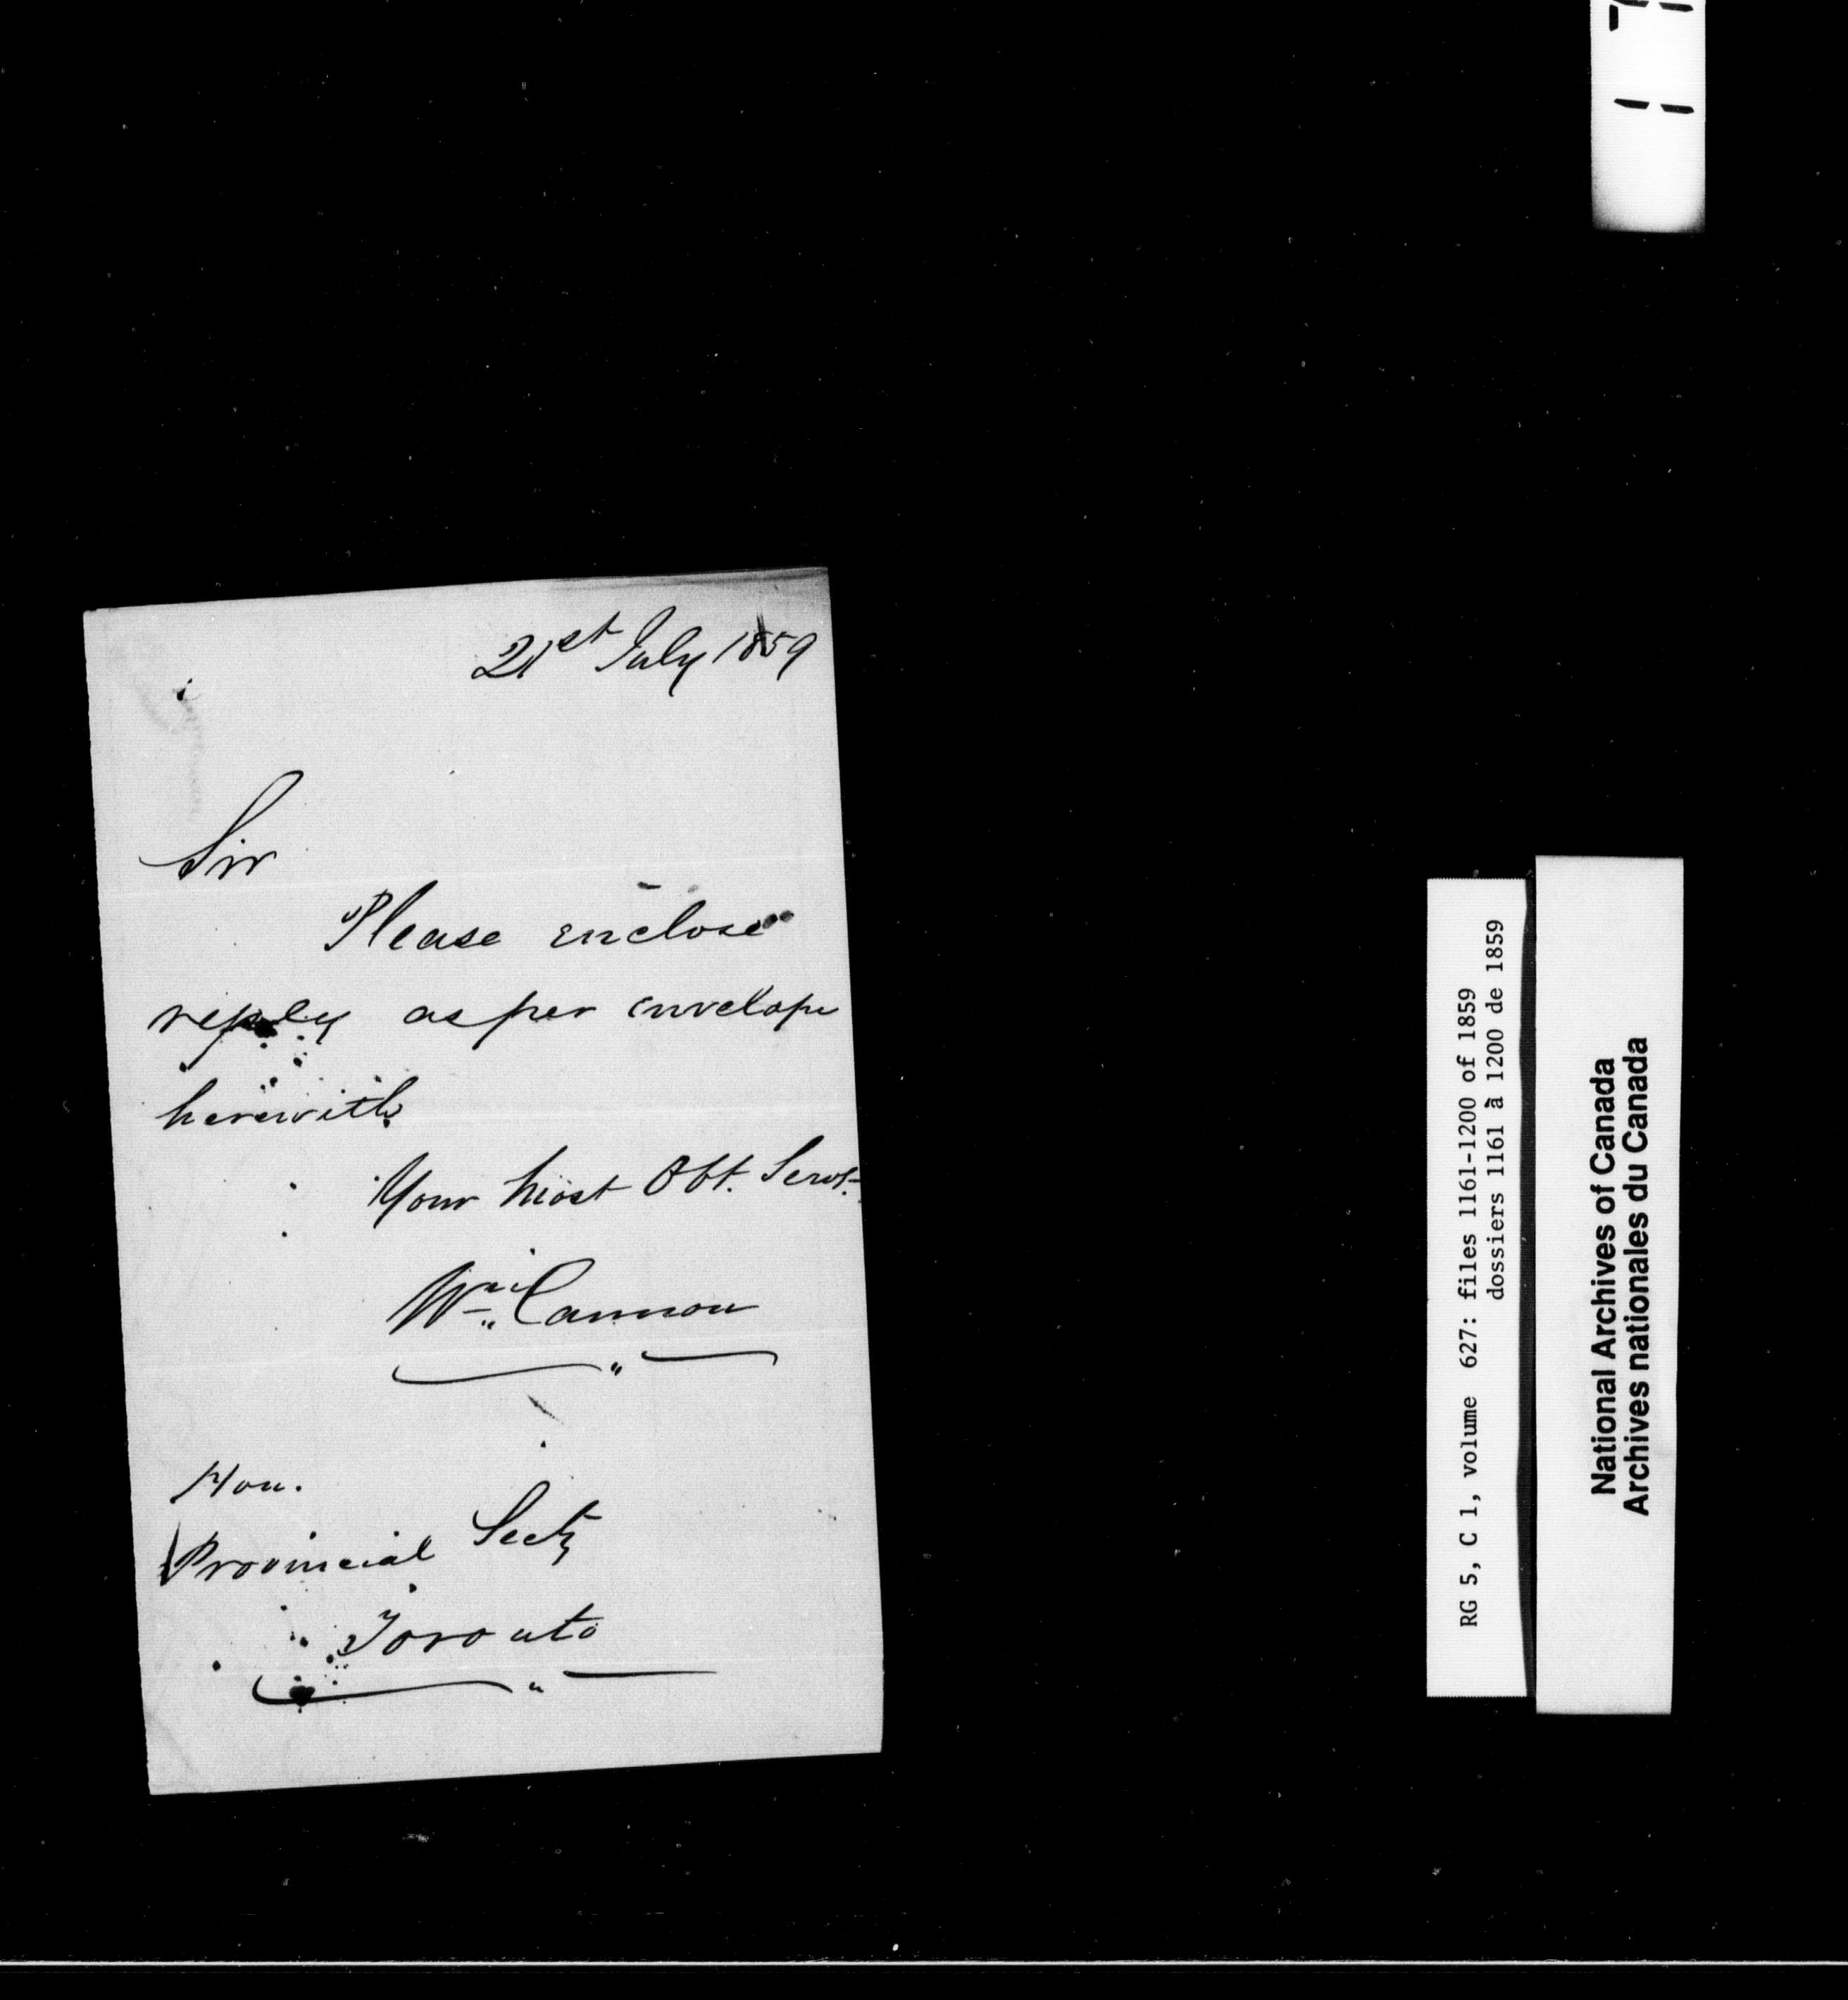 21st July 1859
Sir
Please enclose
reply as per envelope
herewith
Your Most Obt. Servt.
Wm. Cannon
Hon.
Provincial Secty
Toronto
RG 5, C 1, volume 627: files 1161-1200 of 1859
dossiers 1161 à 1200 de 1859
National Archives of Canada
Archives nationales du Canada